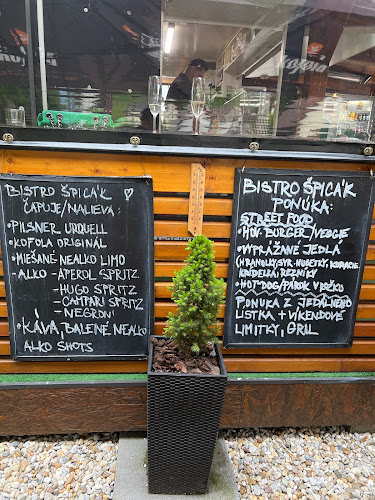 BISTRO ŠPICÁK
ČAPUJE/NALIEVA:
• PILSNER URQUELL
• KOFOLA ORIGINÁL
• MIEŠANÉ NEALKO LIMO
• ALKO - APEROL SPRITZ
- HUGO SPRITZ
- CAMPARI SPRITZ
- NEGRONI
• KÁVA, BALENÉ NEALKO
ALKO SHOTS
BISTRO ŠPICÁK
PONUKA:
STREET FOOD
• HOV. BURGER/VEGGIE
• VYPRÁŽANÉ JEDLÁ
(HRANOLKY, SYR, NUGETKY,
KRÍDELKÁ, REZNÍKY)
• HOT-DOG/PÁROK V ROŽKU
PONUKA Z JEDÁLNEHO
LÍSTKA + VÍKENDOVÉ
LIMITKY, GRIL